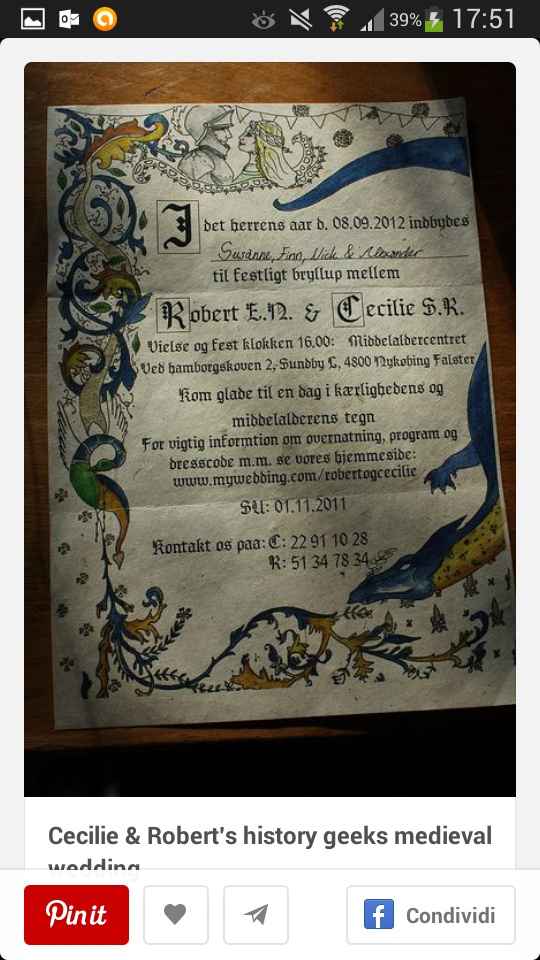 39% 17:51
I det herrens aar d. 08.09.2012 indbydes
Susanne, Finn, Nick & Alexander
til festligt bryllup mellem
Robert E.N. & Cecilie S.R.
Vielse og fest klokken 16.00: Middelaldercentret
Ved hamborgskoven 2, Sundby L, 4800 Nykobing Falster
Kom glade til en dag i kærlighedens og
middelalderens tegn
For vigtig informtion om overnatning, program og
dresscode m.m. se vores hjemmeside:
www.mywedding.com/robertogcecilie
SU: 01.11.2011
Kontakt os paa: C: 22 91 10 28
R: 51 34 78 34
Cecilie & Robert's history geeks medieval
wedding
Pin it
Condividi